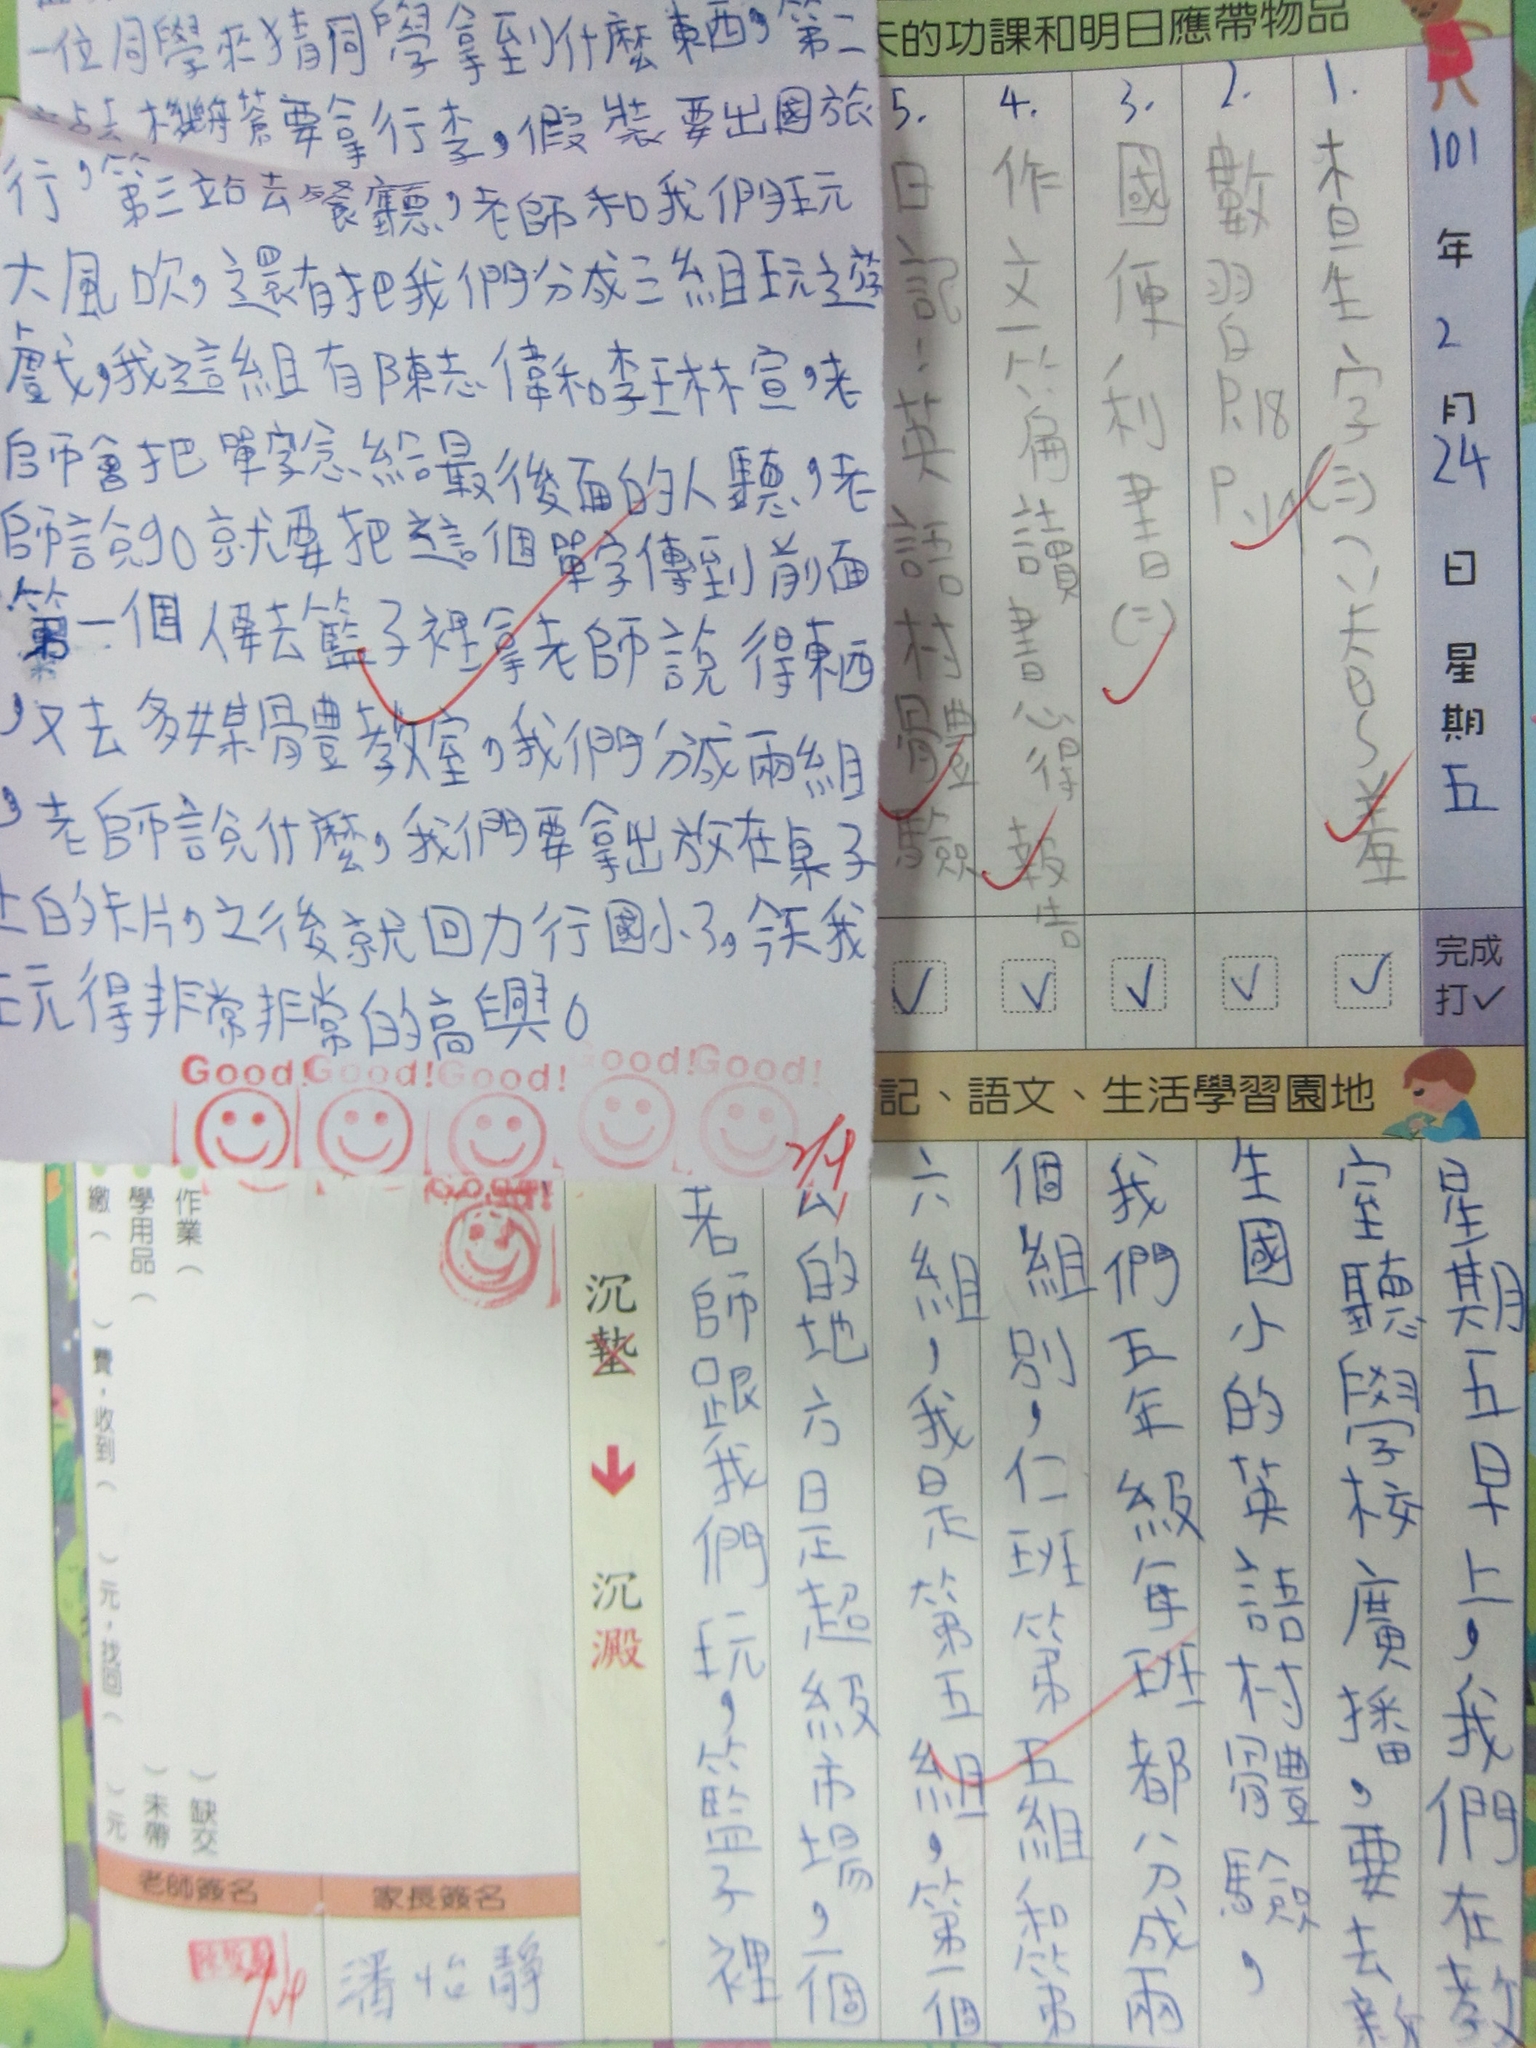 一位同學來猜同學拿到什麼東西，第二
要拿行李，假裝要出國旅
行，第三站去餐廳，老師和我們玩
大風吹，還有把我們分成三組玩遊
戲，我這組有陳志偉和李玨林宣，老
師會把單字念給最後面的人聽，老
師說go就要把這個單字傳到前面
第一個人去籃子裡拿老師說得東西
，又去多媒體教室，我們分成兩組
，老師說什麼，我們要拿出放在桌子
上的卡片，之後就回力行國小了，今天我
玩得非常非常的高興。
Good! Good! Good! Good! Good!
2/4
天的功課和明日應帶物品
101年2月24日星期五
1. 本生字(三)
2. 數習白P.18
3. 國便利書(三)
4. 作文一篇讀書心得報告
5. 日記：英語村體驗
完成打✓
記、語文、生活學習園地
星期五早上，我們在教
室聽學校廣播，要去新
生國小的英語村體驗，
我們五年級每班都分成兩
個組別，仁班第五組和第
六組，我是第五組，第一個
的地方是超級市場，一個
老師跟我們玩，籃子裡
沉墊
沉澱
作業（ ）缺交
學用品（ ）未帶
繳（ ）費，收到（ ）元，找回（ ）元
老師簽名
家長簽名
潘怡靜